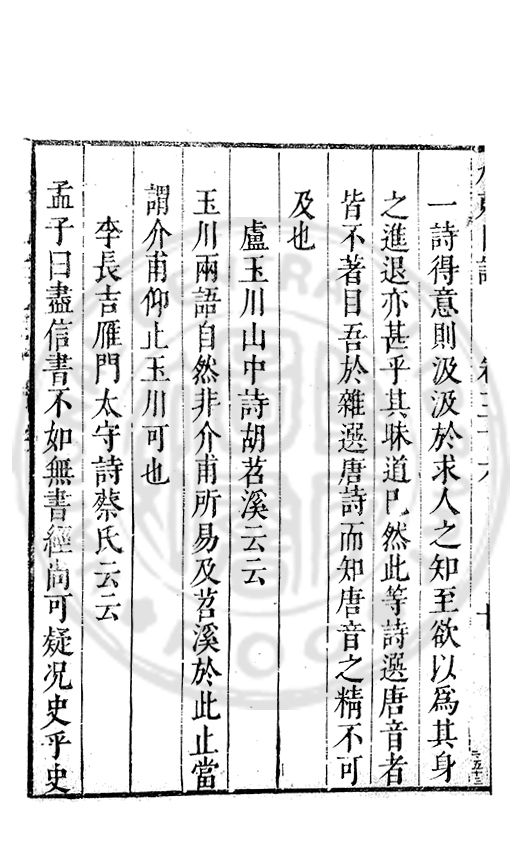 一詩得意則汲汲於求人之知至欲以爲其身
之進退亦甚乎其昧道已然此等詩選唐音者
皆不著目吾於雜選唐詩而知唐音之精不可
及也
盧玉川山中詩胡苕溪云云
玉川兩語自然非介甫所易及苕溪於此止當
謂介甫仰止玉川可也
李長吉雁門太守詩蔡氏云云
孟子曰盡信書不如無書經尚可疑況史乎史